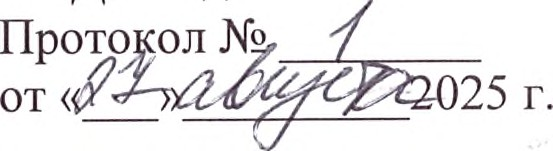 Протокол № 1
от «27» августа 2025 г.